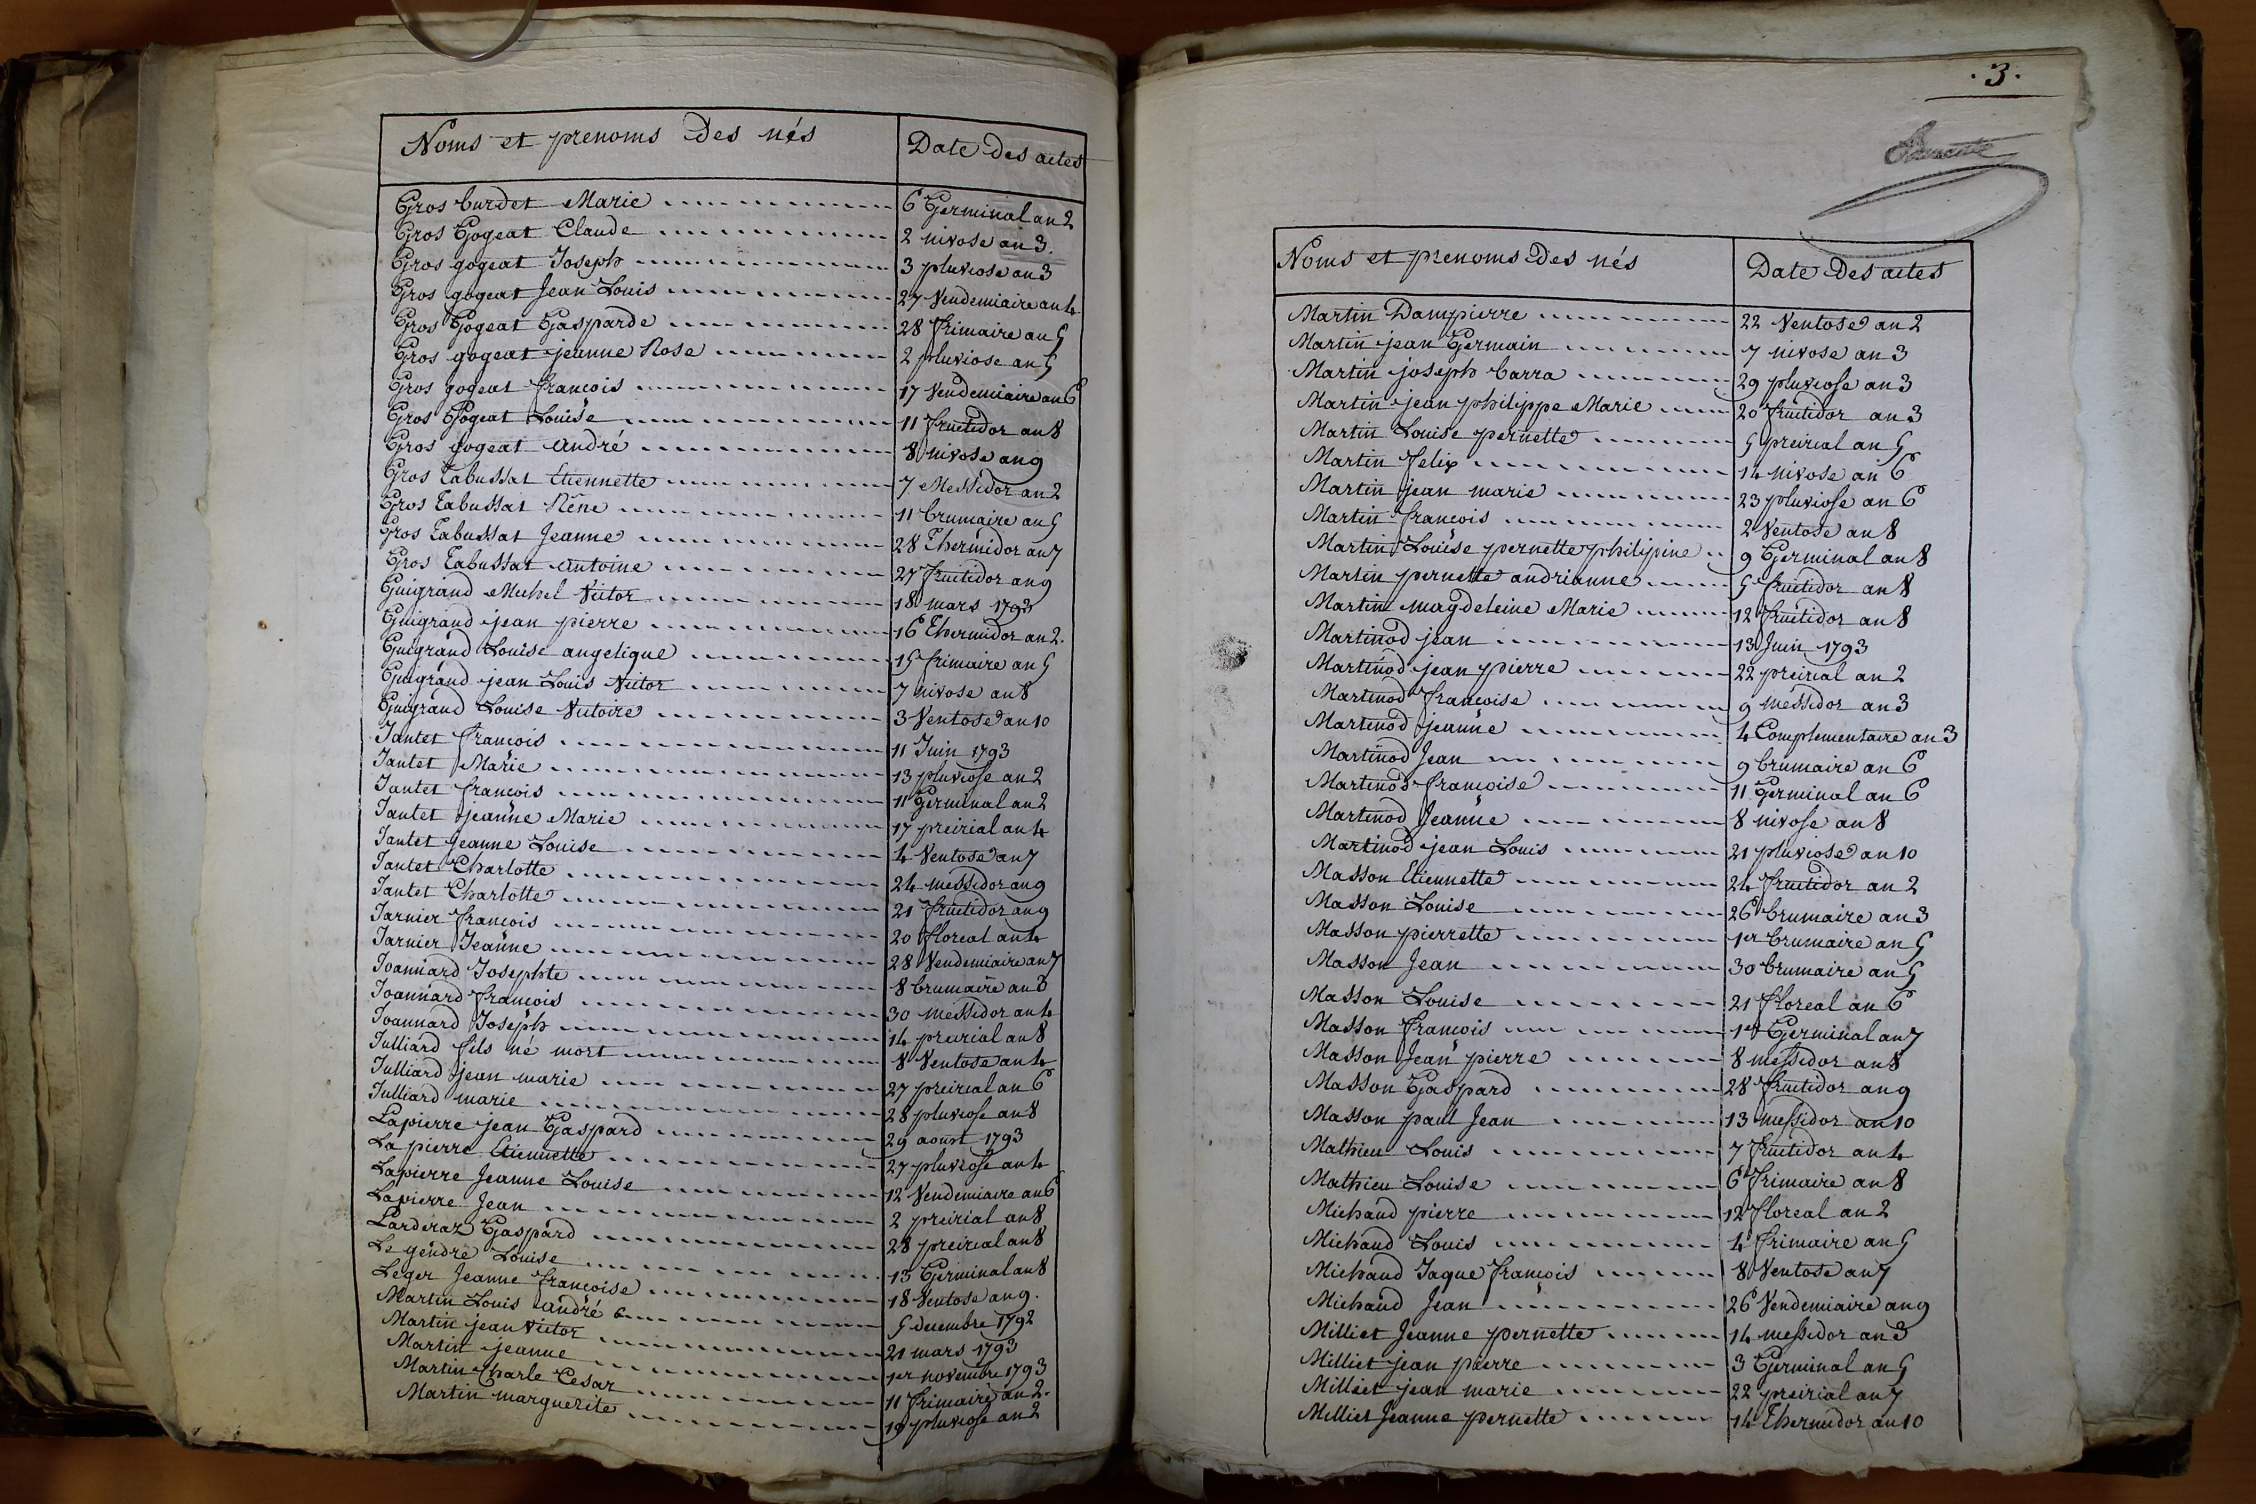 Noms et prenoms Des nés Date Des actes
Gros burdet Marie 6 Germinal an 2
Gros Gogeat Claude 2 nivose an 3.
Gros gogeat Joseph 3 pluviose an 3
Gros gogeat Jean Louis 27 Vendemiaire an 4
Gros Gogeat Gasparde 28 frimaire an 5
Gros gogeat jeanne Rose 2 pluviose an 5
Gros gogeat françois 17 Vendemiaire an 6
Gros Gogeat Louise 11 fructidor an 8
Gros gogeat andré 8 nivose an 9
Gros Tabussat Etiennette 7 Messidor an 2
Gros Tabussat Réne 11 brumaire an 5
Gros Tabussat Jeanne 28 Thermidor an 7
Gros Tabussat antoine 27 fructidor an 9
Guigrand Michel Victor 18 mars 1793
Guigrand jean pierre 16 Thermidor an 2.
Guigrand Louise angelique 15 frimaire an 5
Guigrand jean Louis Victor 7 nivose an 8
Guigrand Louise Victoire 3 Ventose an 10
Jantet françois 11 Juin 1793
Jantet Marie 13 pluviose an 2
Jantet françois 11 Germinal an 2
Jantet jeanne Marie 17 preirial an 4
Jantet Jeanne Louise 4 Ventose an 7
Jantet Charlotte 24 messidor an 9
Jantet Charlotte 21 fructidor an 9
Jarnier françois 20 floreal an 4
Jarnier Jeanne 28 Vendemiaire an 7
Joannard Josephte 8 brumaire an 3
Joannard françois 30 messidor an 4
Joannard Joseph 14 preirial an 8
Julliard fils né mort 8 Ventose an 4
Julliard jean marie 27 preirial an 6
Julliard marie 28 pluviose an 8
Lapierre jean Gaspard 29 aoust 1793
La pierre Etiennette 27 pluviose an 4
Lapierre Jeanne Louise 12 Vendemiaire an 6
Lapierre Jean 2 preirial an 8
Larderaz Gaspard 28 preirial an 8
Le gendre Louise 13 Germinal an 8
Leger Jeanne françoise 18 Ventose an 9.
Martin Louis andré 5 decembre 1792
Martin jean Victor 21 mars 1793
Martin jeanne 1er novembre 1793
Martin Charle Cesar 11 frimaire an 2.
Martin marguerite 19 pluviose an 2
.3.
Noms et prenoms Des nés Date Des actes
Martin Dampierre 22 Ventose an 2
Martin jean Germain 7 nivose an 3
Martin joseph barra 29 pluviose an 3
Martin jean philippe Marie 20 fructidor an 3
Martin Louise pernette 5 preirial an 5
Martin Felix 14 nivose an 6
Martin jean marie 23 pluviose an 6
Martin françois 2 Ventose an 8
Martin Louise pernette philipine 9 Germinal an 8
Martin pernette andrianne 5 fructidor an 8
Martin magdeleine Marie 12 fructidor an 8
Martinod jean 13 Juin 1793
Martinod jean pierre 22 preirial an 2
Martinod françoise 9 méssidor an 3
Martinod jeanne 4 Complementaire an 3
Martinod Jean 9 brumaire an 6
Martinod françoise 11 Germinal an 6
Martinod Jeanne 8 nivose an 8
Martinod jean Louis 21 pluviose an 10
Masson Etiennette 24 fructidor an 2
Masson Louise 26 brumaire an 3
Masson pierrette 1er brumaire an 5
Masson Jean 30 brumaire an 5
Masson Louise 21 floreal an 6
Masson françois 1er Germinal an 7
Masson Jean pierre 8 messidor an 8
Masson Gaspard 28 fructidor an 9
Masson paul Jean 13 messidor an 10
Mathieu Louis 7 fructidor an 4
Mathieu Louise 6 frimaire an 8
Michaud pierre 12 floreal an 2
Michaud Louis 4 frimaire an 5
Michaud Jaque françois 8 Ventose an 7
Michaud Jean 26 Vendemiaire an 9
Milliet Jeanne pernette 14 messidor an 3
Milliet jean pierre 3 Germinal an 5
Milliet jean marie 22 preirial an 7
Milliet Jeanne pernette 14 Thermidor an 10